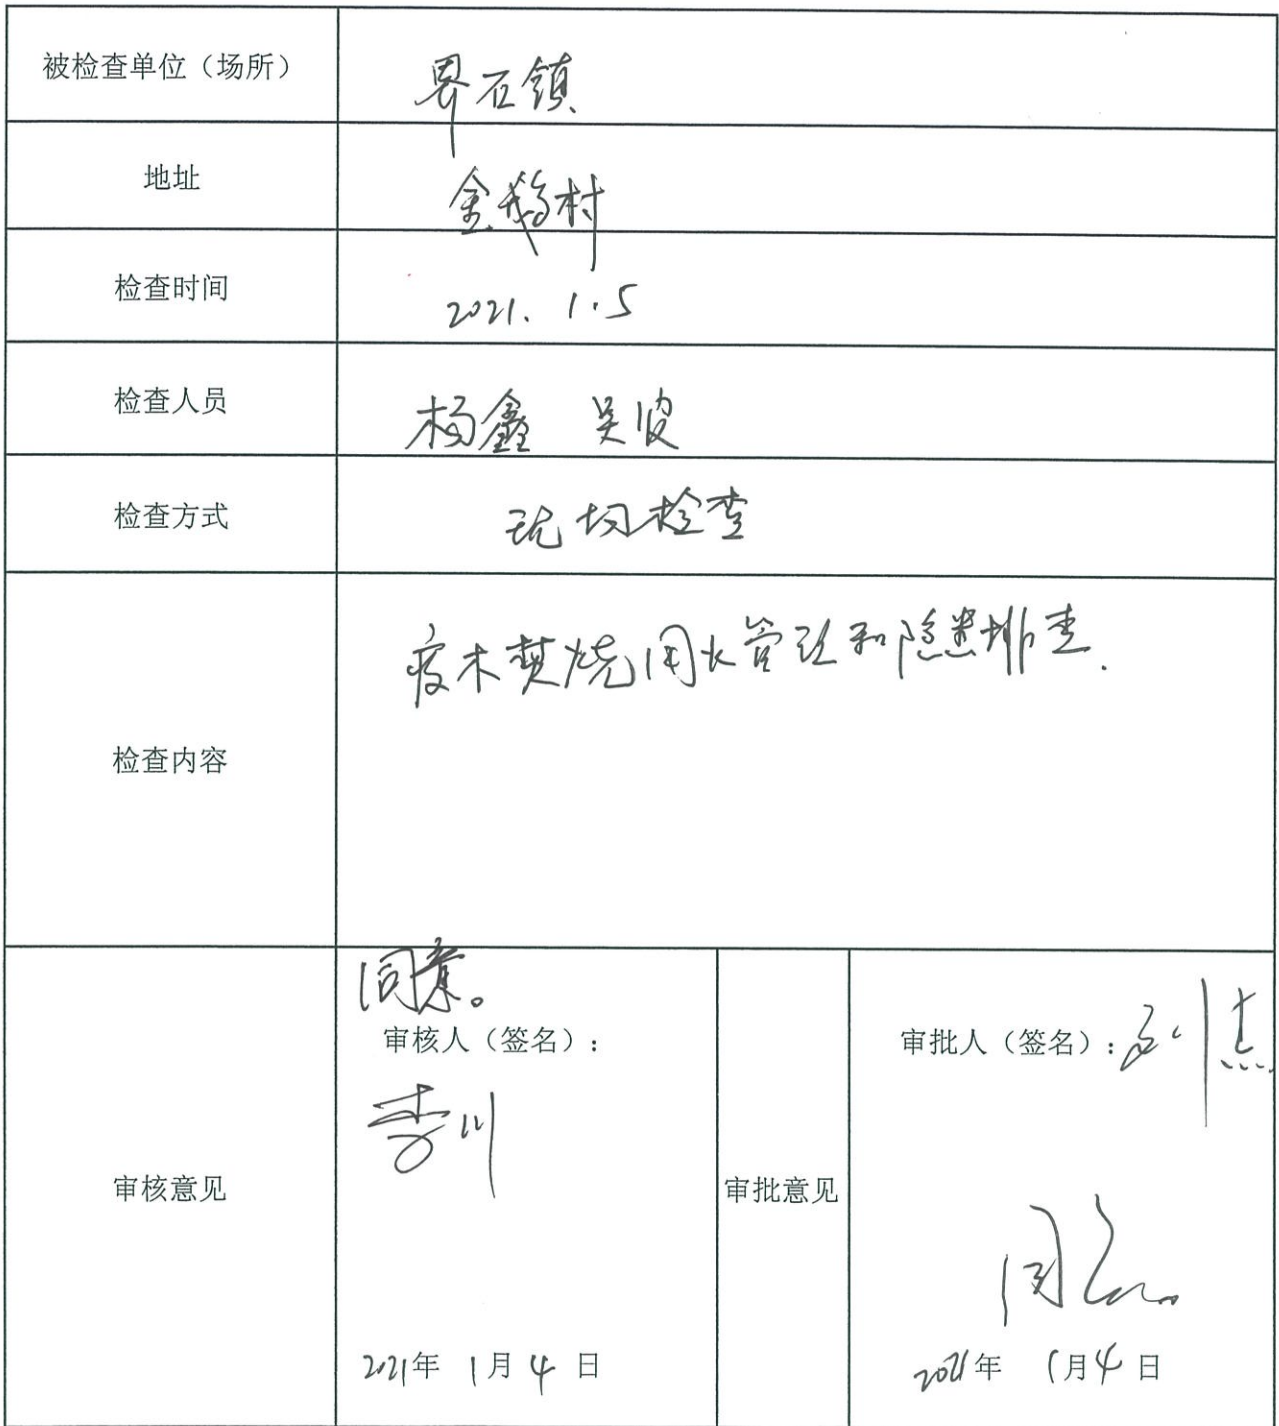 被检查单位（场所） 界石镇
地址 金鹅村
检查时间 2021.1.5
检查人员 杨鑫 吴波
检查方式 现场检查
检查内容 疫木焚烧用火管理和隐患排查.
同意。
审核人（签名）：
李川
审核意见
2021年 1月4日
审批意见
审批人（签名）：刘杰
同意
2021年 1月4日